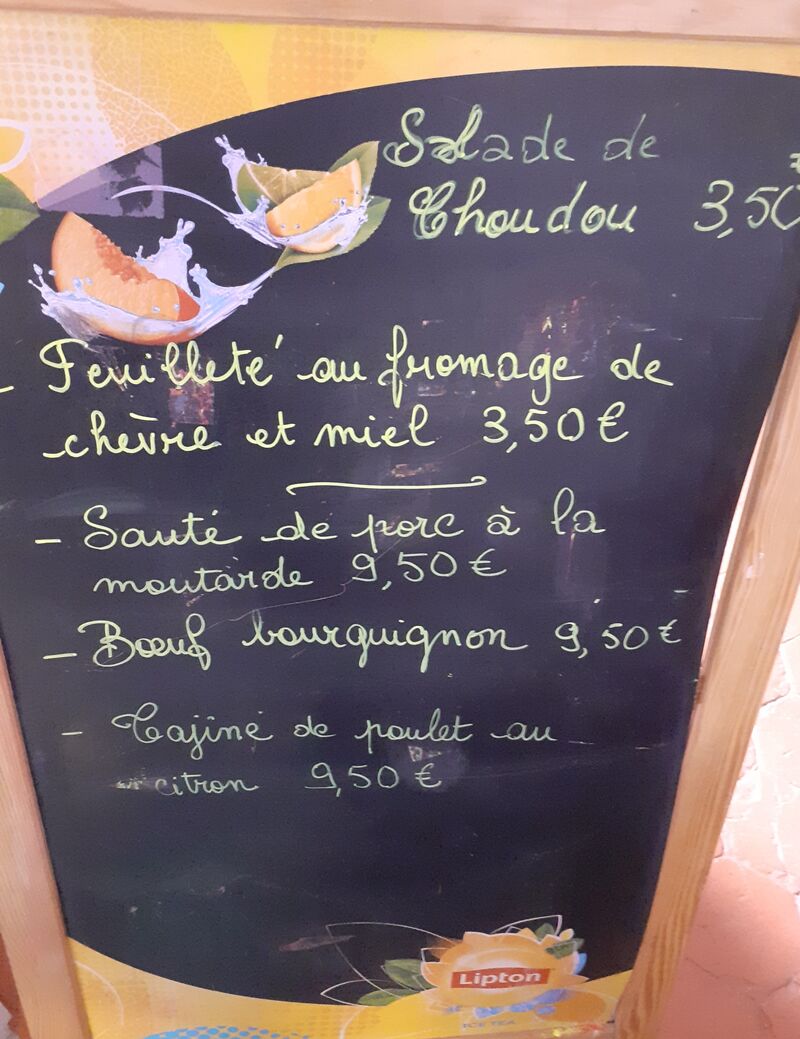 Salade de
Choudou 3,50
- Feuilleté au fromage de
chèvre et miel 3,50 €
- Sauté de porc à la
moutarde 9,50 €
- Bœuf bourguignon 9,50 €
- Tajine de poulet au
citron 9,50 €
Lipton
ICE TEA